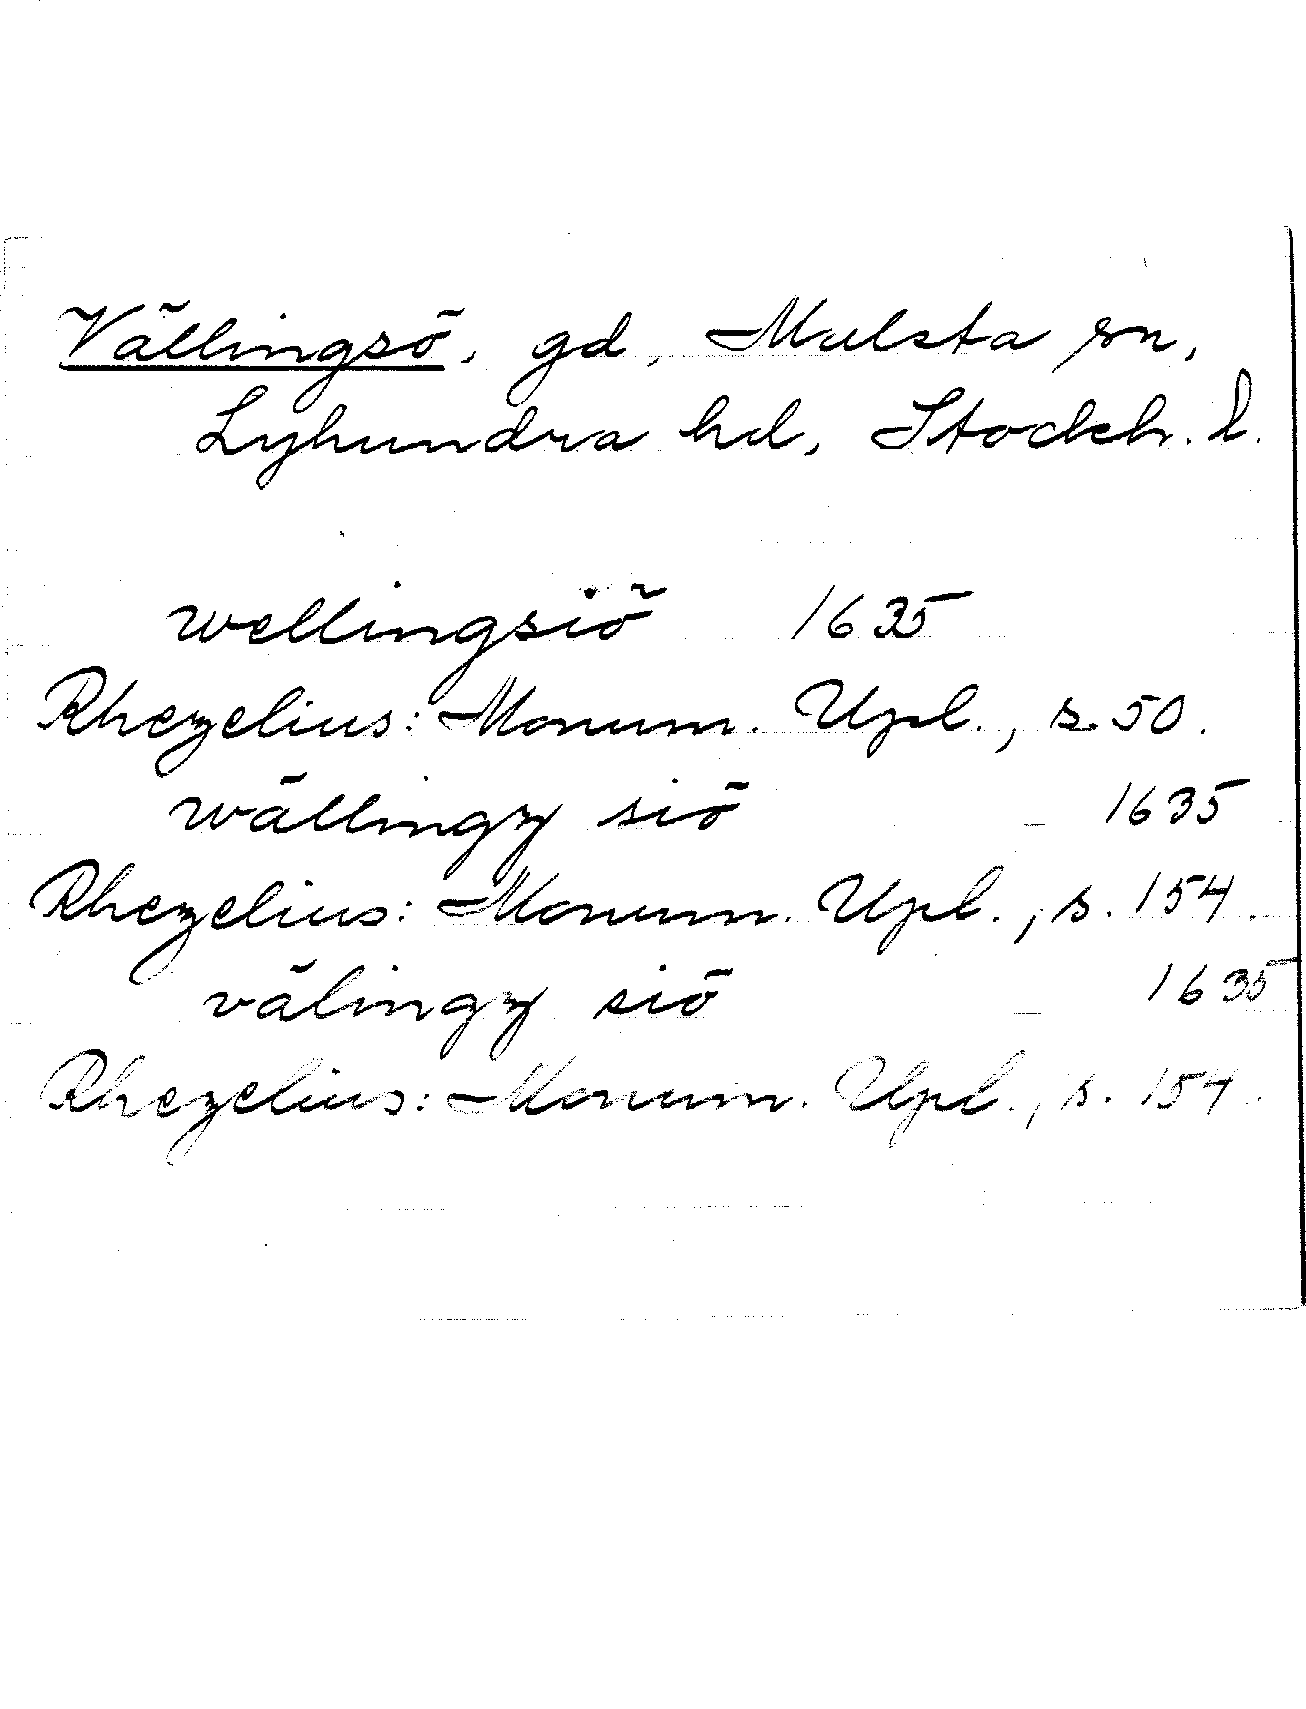 Vällingsö, gd, Malsta sn,
Lyhundra hd, Stockh. l.
wellingsiö 1635
Rhezelius: Monum. Upl., s. 50.
wällingz siö 1635
Rhezelius: Monum. Upl., s. 154.
välingz siö 1635
Rhezelius: Monum. Upl., s. 154.